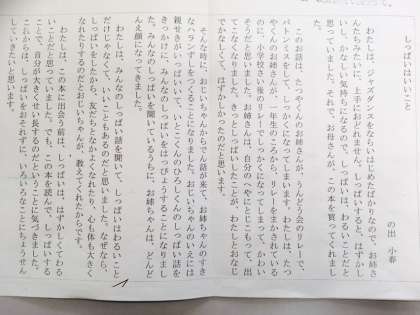 しっぱいはいいこと
の出　小春
わたしは、ジャズダンスをならいはじめたばかりなので、お姉さ
んたちみたいに、上手におどれません。しっぱいすると、はずかし
いし、かなしい気持ちになるので、しっぱいは、わるいことだと
思っていました。それで、お母さんが、この本を買ってくれまし
た。
このお話は、たつやくんのお姉さんが、うんどう会のリレーで、
バトンミスをして、しっかくになってしまいます。わたしは、たつ
やくんのお姉さんが、一年生のころから、リレーをまかされている
のに、小学校さい後のリレーでしっかくになってしまって、かわい
そうだと思いました。お姉さんは、自分のへやにとじこもって、出
てこなくなりました。きっとしっぱいしたことが、わたしとおなじ
でかなしくて、はずかしかったのだと思います。
そんな時に、おじいちゃんからでん話が来て、お姉ちゃんのすき
なハランずしをつくることになりました。おじいちゃんのいえには
親せきがいっぱいいて、いとこくんのひろしくんのしっぱい話を
きっかけに、みんなのしっぱいをはっぴょうすることになりまし
た。みんなのしっぱいを聞いているうちに、お姉ちゃんは、どんど
んえ顔になってきました。
わたしは、みんなのしっぱい話を聞いて、しっぱいはわるいこと
だけじゃなくて、いいこともあるのだと思いました。なぜなら、
しっぱいをしたから、友だちとなかよくなれたり、心も体も大きく
なれたりするのだとおじいちゃんが、教えてくれたからです。
わたしは、この本に出会う前は、しっぱいは、はずかしくてわる
いことだと思っていました。でも、この本を読んで、しっぱいする
ことで、自分が大きくせい長するのだということに気づきました。
これからは、しっぱいをおそれずに、いろいろなことにちょうせん
していきたいと思います。